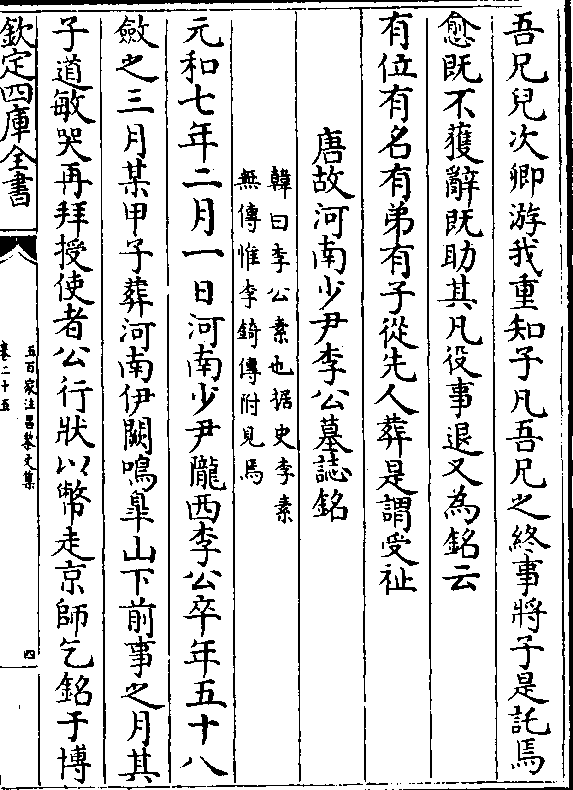 吾兄兒次卿游我重知子凡吾兄之終事將子是託焉
愈既不獲辭既助其凡役事退又為銘云
有位有名有弟有子從先人葬是謂受祉
唐故河南少尹李公墓誌銘
韓曰李公素也据史李素
無傳惟李錡傳附見焉
元和七年二月一日河南少尹隴西李公卒年五十八
斂之三月某甲子葬河南伊闕鳴臯山下前事之月其
子道敏哭再拜授使者公行狀以幣走京師乞銘于博
欽定四庫全書
五百家注昌黎文集
卷二十五
四